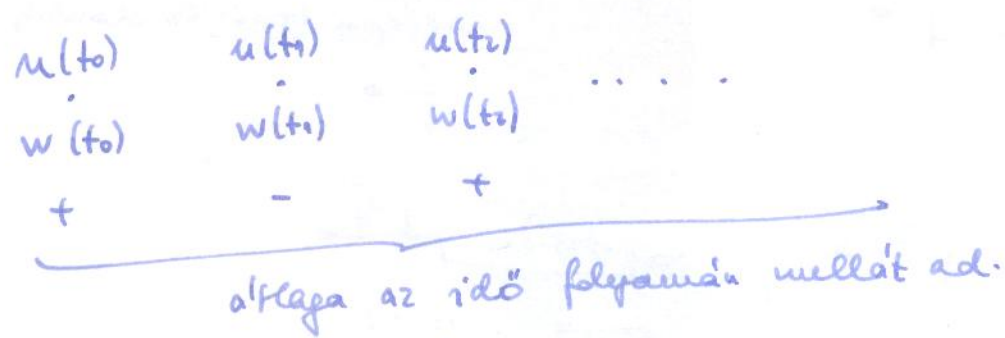 u(t₀) u(t₁) u(t₂)
· · · · · · ·
w(t₀) w(t₁) w(t₂)
+ - +
átlaga az idő folyamán nullát ad.